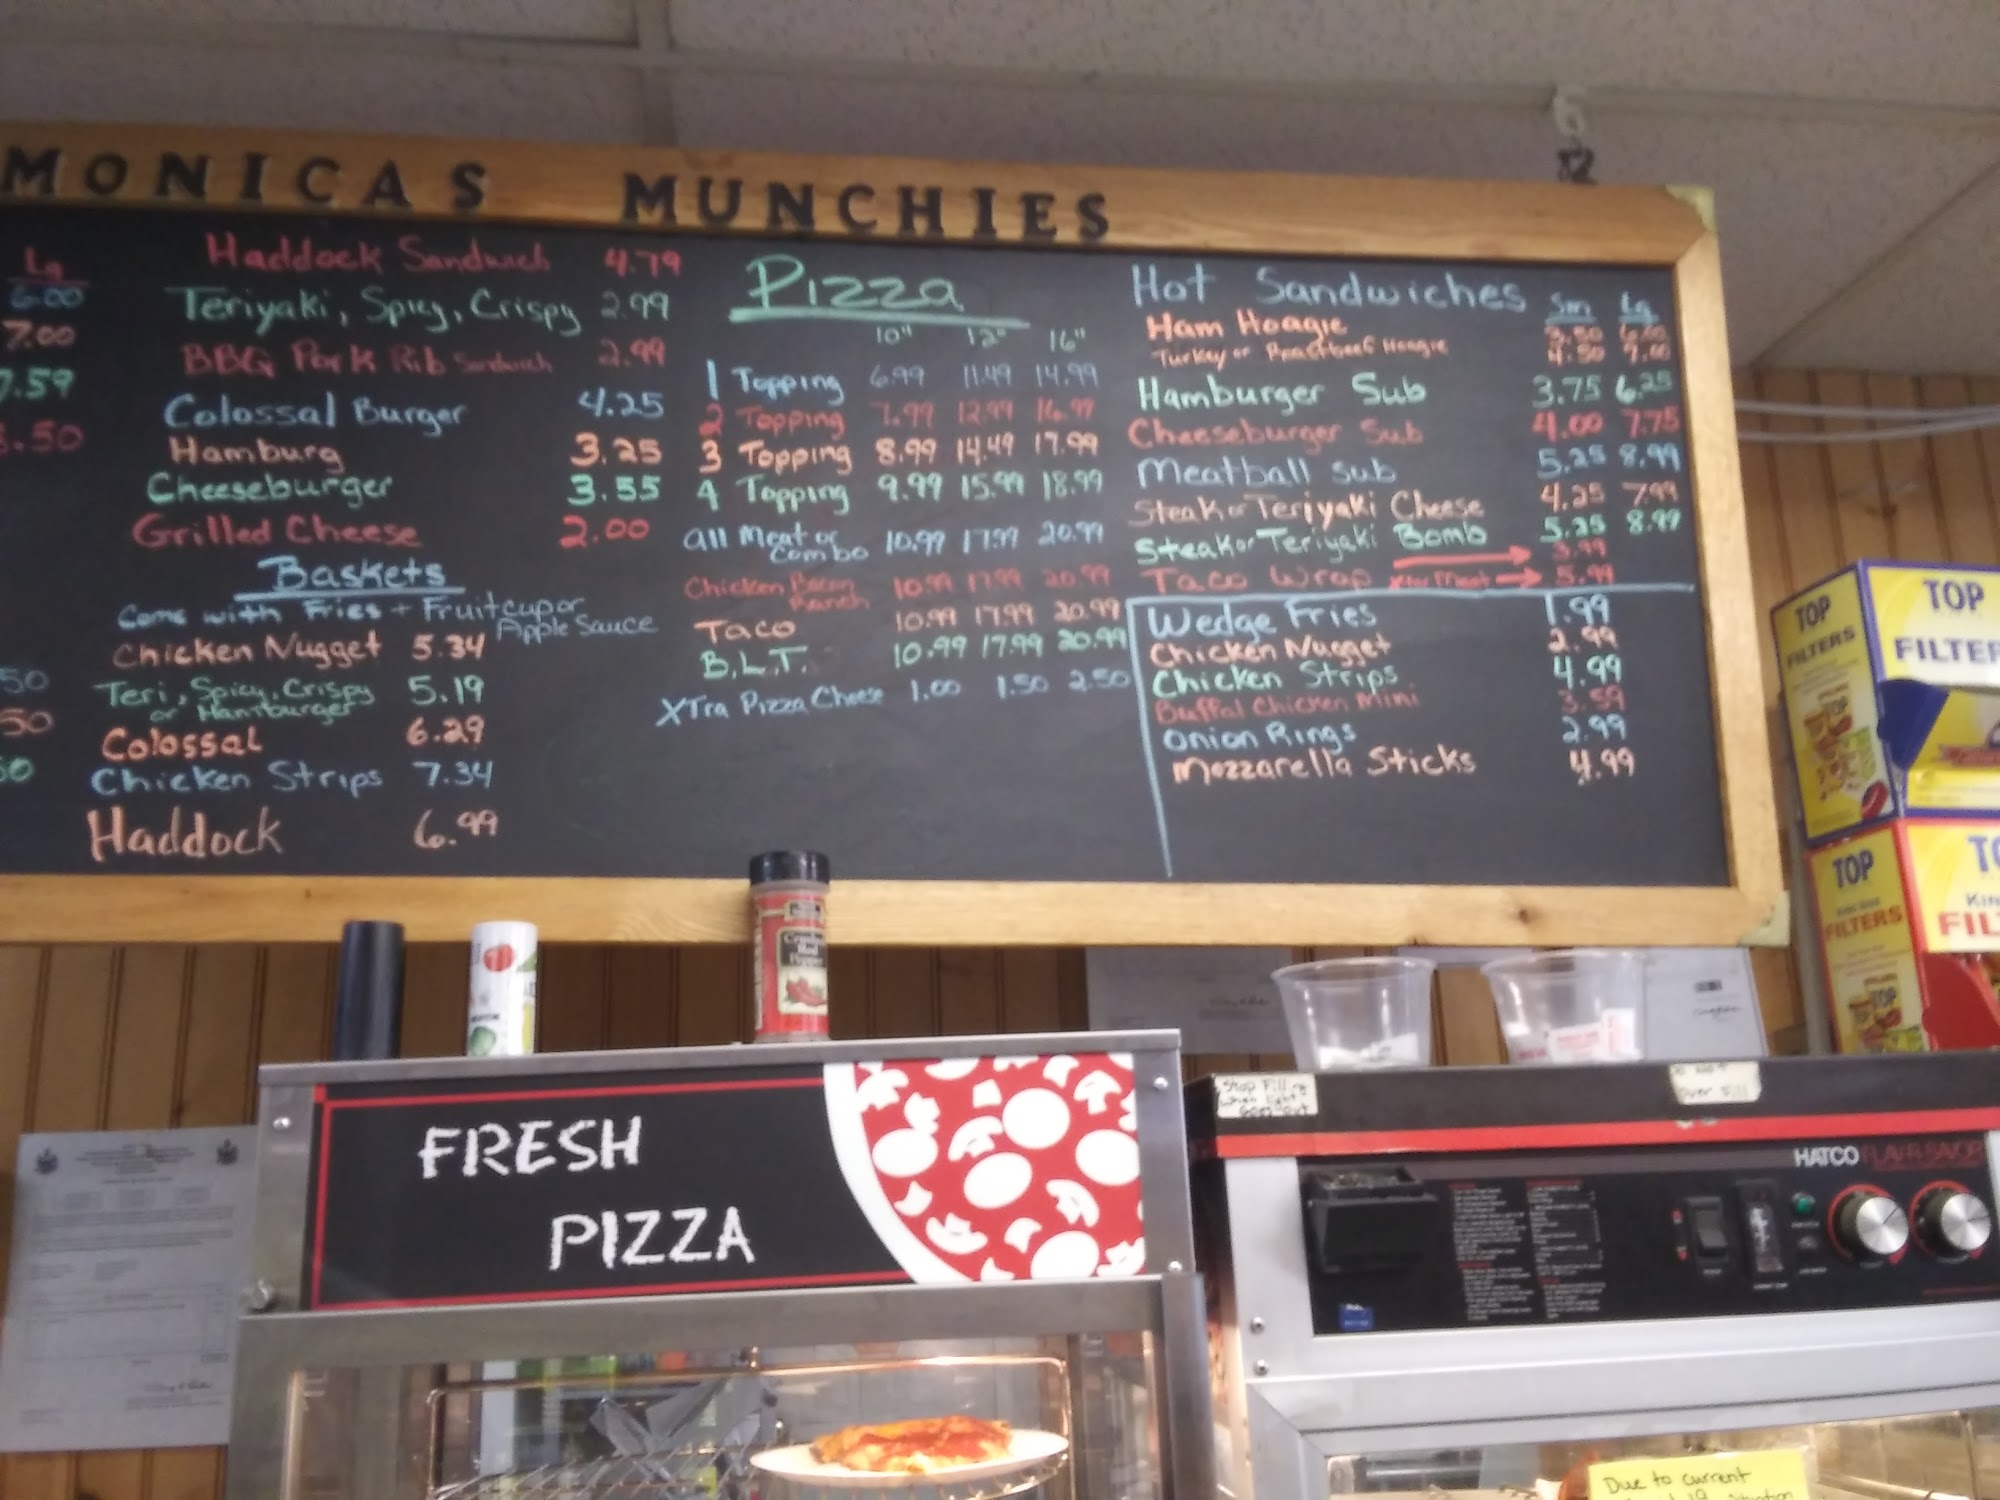 MONICAS MUNCHIES
Lg
6.00
7.00
7.59
.50
50
50
50
Haddock Sandwich 4.79
Teriyaki, Spicy, Crispy 2.99
BBQ Pork Rib Sandwich 2.99
Colossal Burger 4.25
Hamburg 3.25
Cheeseburger 3.55
Grilled Cheese 2.00
Baskets
Come with Fries + Fruit cup or
Apple Sauce
Chicken Nugget 5.34
Teri, Spicy, Crispy 5.19
or Hamburger
Colossal 6.29
Chicken Strips 7.34
Haddock 6.99
Pizza
10" 12" 16"
1 Topping 6.99 11.49 14.99
2 Topping 7.99 12.99 16.99
3 Topping 8.99 14.49 17.99
4 Topping 9.99 15.99 18.99
All Meat or
Combo 10.99 17.99 20.99
Chicken Bacon
Ranch 10.99 17.99 20.99
Taco 10.99 17.99 20.99
B.L.T. 10.99 17.99 20.99
XTra Pizza Cheese 1.00 1.50 2.50
Hot Sandwiches Sm Lg
Ham Hoagie 3.50 6.00
Turkey or Roastbeef Hoagie 4.50 7.00
Hamburger Sub 3.75 6.25
Cheeseburger Sub 4.00 7.75
Meatball Sub 5.25 8.99
Steak or Teriyaki Cheese 4.25 7.99
Steak or Teriyaki Bomb 5.25 8.99
3.99
Taco Wrap Xtra Meat 5.99
Wedge Fries 1.99
Chicken Nugget 2.99
Chicken Strips 4.99
Buffal Chicken Mini 3.59
Onion Rings 2.99
Mozzarella Sticks 4.99
TOP
FILTERS
TOP
FILTER
TOP
FILTERS
TO
KIN
FIL
Crushed
Red
Pepper
Stop Filling
when light
Goes out
Do Not
Over Fill
FRESH
PIZZA
HATCO FLAV-R-SAVOR
Due to current